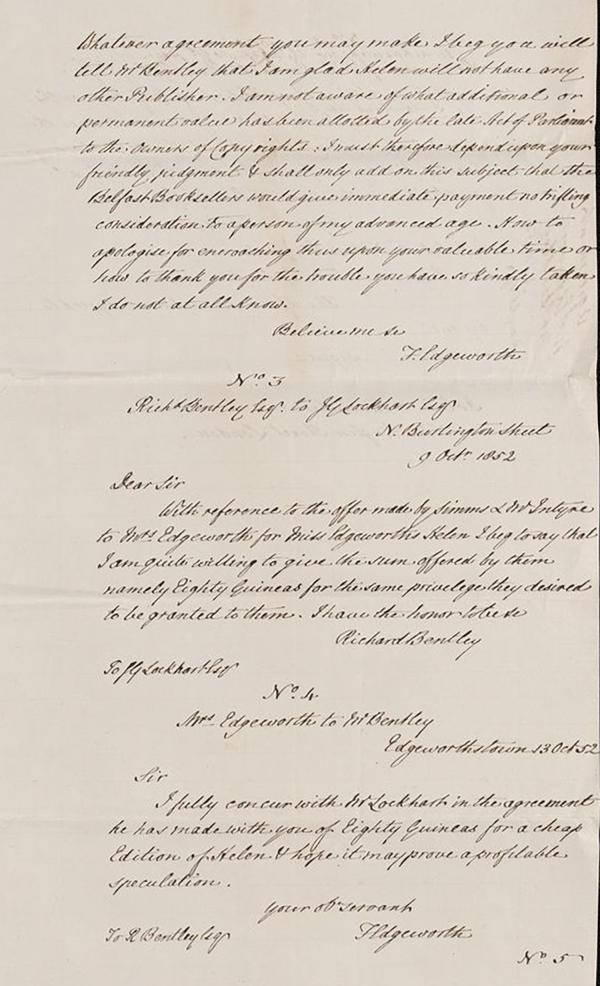 Whatever agreement you may make I beg you will
tell Mr Bentley that I am glad Helen will not have any
other Publisher. I am not aware of what additional or
permanent value has been allotted by the late Act of Parliament
to the Owners of Copyrights: I must therefore depend upon your
friendly judgment & shall only add on this subject that the
Belfast Booksellers would give immediate payment no trifling
consideration to a person of my advanced age. How to
apologise for encroaching thus upon your valuable time or
how to thank you for the trouble you have so kindly taken
I do not at all know.
Believe me &c
F. Edgeworth
No. 3
Richd Bentley Esqr. to JG Lockhart Esqr
N. Burlington Street
9 Octr 1852
Dear Sir
With reference to the offer made by Simms & McIntyre
to Mrs Edgeworth for Miss Edgeworths Helen I beg to say that
I am quite willing to give the sum offered by them
namely Eighty Guineas for the same privilege they desired
to be granted to them. I have the honor to be &c
Richard Bentley
To JG Lockhart Esqr
No. 4.
Mrs Edgeworth to Mr Bentley
Edgeworthstown 13 Oct 52
Sir
I fully concur with Mr Lockhart in the agreement
he has made with you of Eighty Guineas for a cheap
Edition of Helen & hope it may prove a profitable
speculation.
Your obt servant
F Edgeworth
To R Bentley Esqr
No 5